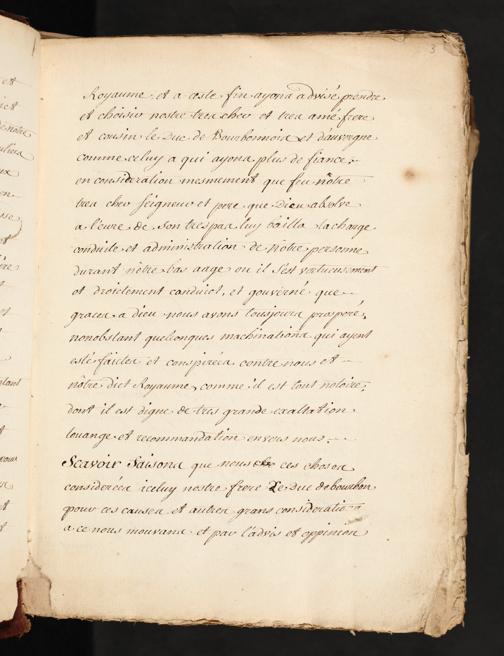 3
Royaume et a ceste fin ayons advisé prendre
et choisir nostre tres cher et tres amé frere
et cousin le Duc de Bourbonnois et d'auvergne
comme celuy a qui ayons plus de fiance,
en consideration mesmement que feu nôtre
tres cher seigneur et pere que Dieu absolve
a l'eure de son trespas luy bailla la charge
conduite et administration de nôtre personne
durant nôtre bas aage ou il s'est vertueusement
et droictement conduict, et gouverné que
graces a dieu nous avons tousjours prosperé,
nonobstant quelconques machinations qui ayent
esté faictes et conspirées contre nous et
nôtre dict Royaume, comme il est tout notoire,
dont il est digne de tres grande exaltation
louange et recommandation envers nous.
Scavoir faisons que nous ces choses
considerées iceluy nostre frere Le Duc de bourbon
pour ces causes et autres grans considerations
a ce nous mouvans et par l'advis et oppinion